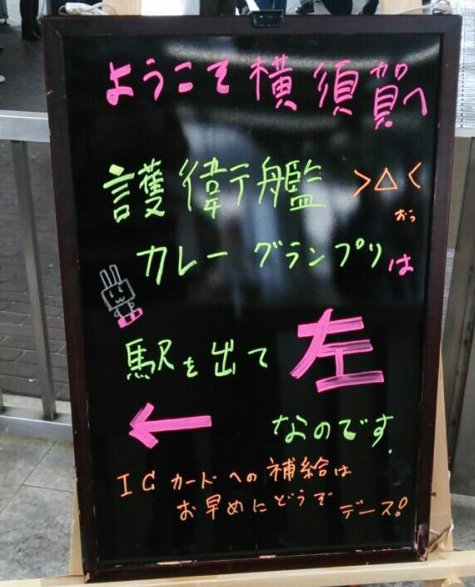 ようこそ横須賀へ
護衛艦 >△<
おぅ
カレーグランプリは
駅を出て 左
← なのです.
ICカードへの補給は
お早めにどうぞ デース!